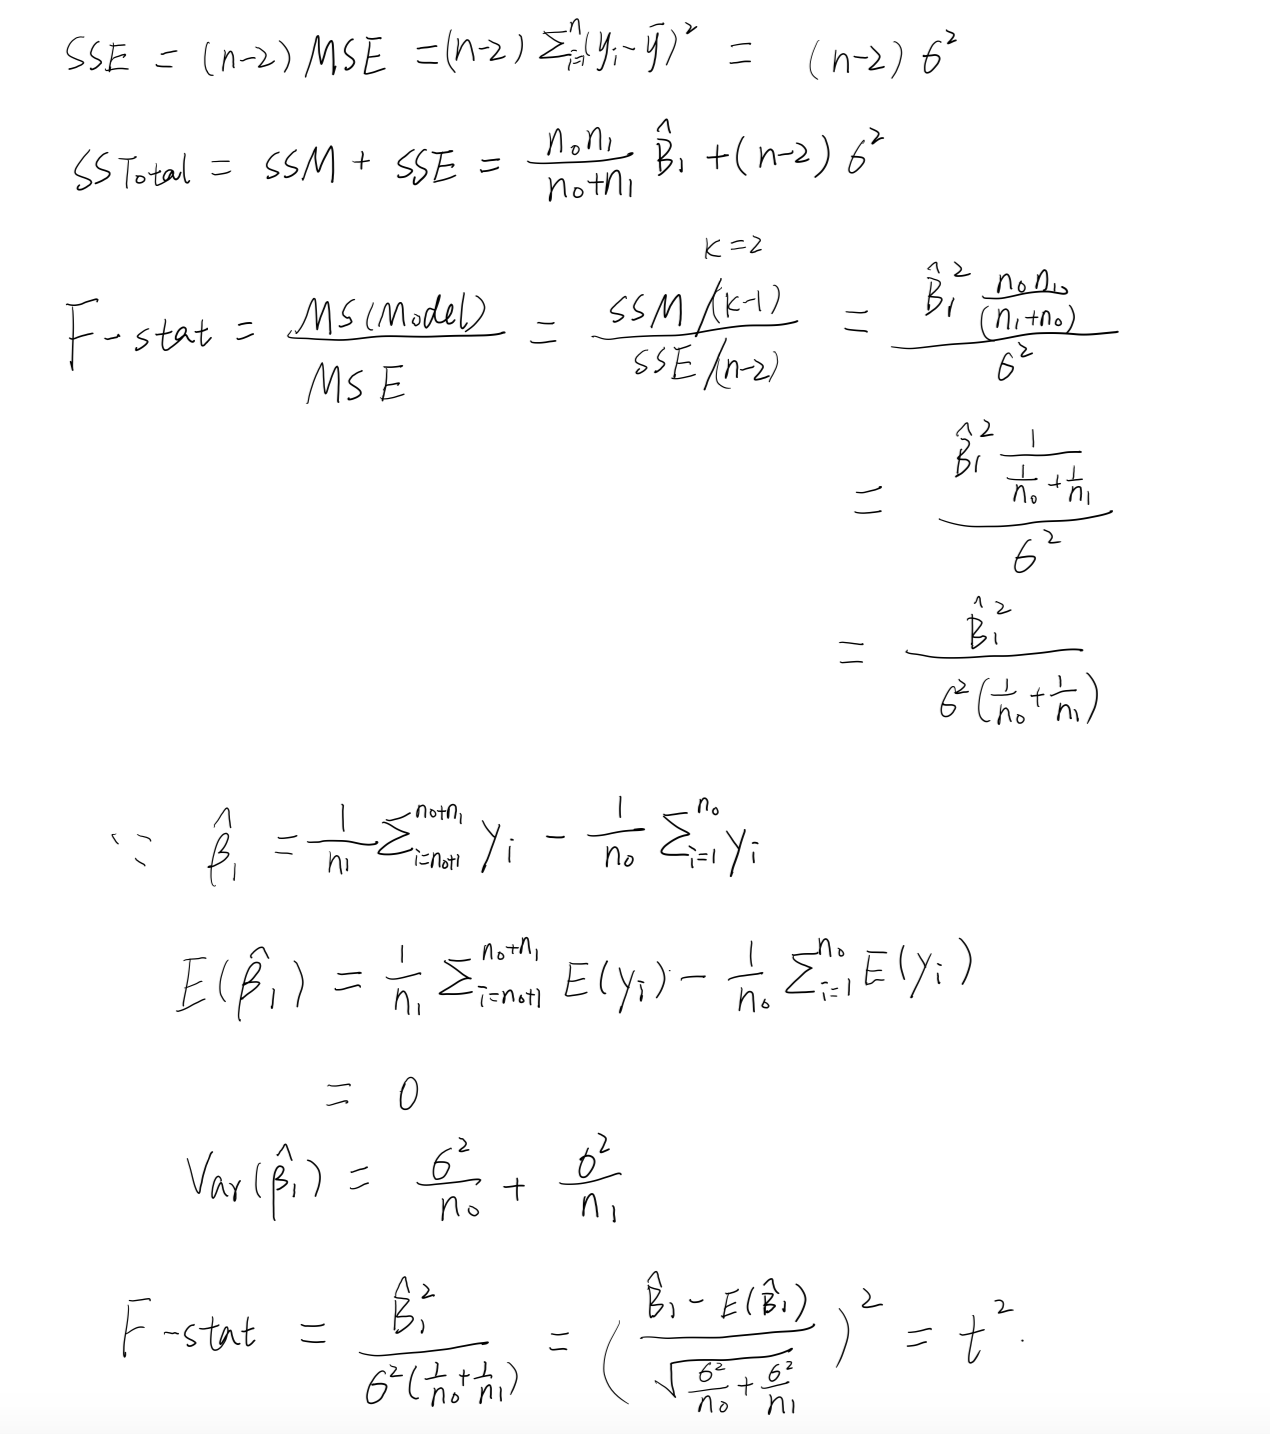 SSE = (n-2) MSE = (n-2) ∑_{i=1}^{n} (y_i - ȳ)² = (n-2) 6²
SSTotal = SSM + SSE = \frac{n₀n₁}{n₀+n₁} B̂₁ + (n-2) 6²
K=2
F-stat = \frac{MS(Model)}{MSE} = \frac{SSM/(K-1)}{SSE/(n-2)} = \frac{B̂₁² \frac{n₀n₁}{(n₁+n₀)}}{6²}
= \frac{B̂₁² \frac{1}{\frac{1}{n₀}+\frac{1}{n₁}}}{6²}
= \frac{B̂₁²}{6²(\frac{1}{n₀}+\frac{1}{n₁})}
∵ β̂₁ = \frac{1}{n₁} ∑_{i=n₀+1}^{n₀+n₁} y_i - \frac{1}{n₀} ∑_{i=1}^{n₀} y_i
E(β̂₁) = \frac{1}{n₁} ∑_{i=n₀+1}^{n₀+n₁} E(y_i) - \frac{1}{n₀} ∑_{i=1}^{n₀} E(y_i)
= 0
Var(β̂₁) = \frac{6²}{n₀} + \frac{6²}{n₁}
F-stat = \frac{B̂₁²}{6²(\frac{1}{n₀}+\frac{1}{n₁})} = (\frac{B̂₁ - E(B̂₁)}{\sqrt{\frac{6²}{n₀}+\frac{6²}{n₁}}})² = t².